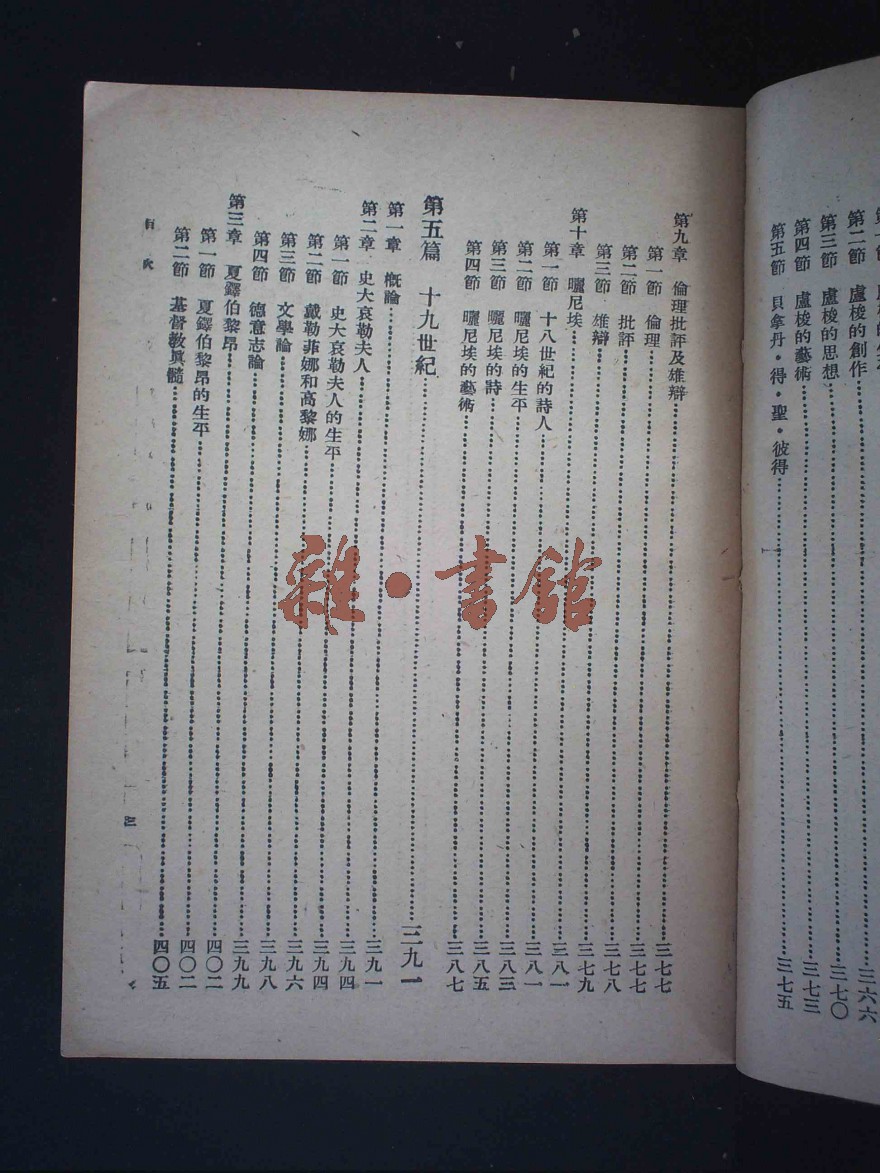 第二節 盧梭的創作……三六六
第三節 盧梭的思想……三七〇
第四節 盧梭的藝術……三七三
第五節 貝拿丹・得・聖・彼得……三七五
第九章 倫理批評及雄辯……三七七
第一節 倫理……三七七
第二節 批評……三七八
第三節 雄辯……三七九
第十章 曬尼埃……三八一
第一節 十八世紀的詩人……三八一
第二節 曬尼埃的生平……三八三
第三節 曬尼埃的詩……三八五
第四節 曬尼埃的藝術……三八七
第五篇 十九世紀……三九一
第一章 概論……三九一
第二章 史大哀勒夫人……三九四
第一節 史大哀勒夫人的生平……三九四
第二節 戴勒菲娜和高黎娜……三九六
第三節 文學論……三九八
第四節 德意志論……三九九
第三章 夏鐸伯黎昂……四〇二
第一節 夏鐸伯黎昂的生平……四〇二
第二節 基督敎眞髓……四〇五
目次
四
雜・書館